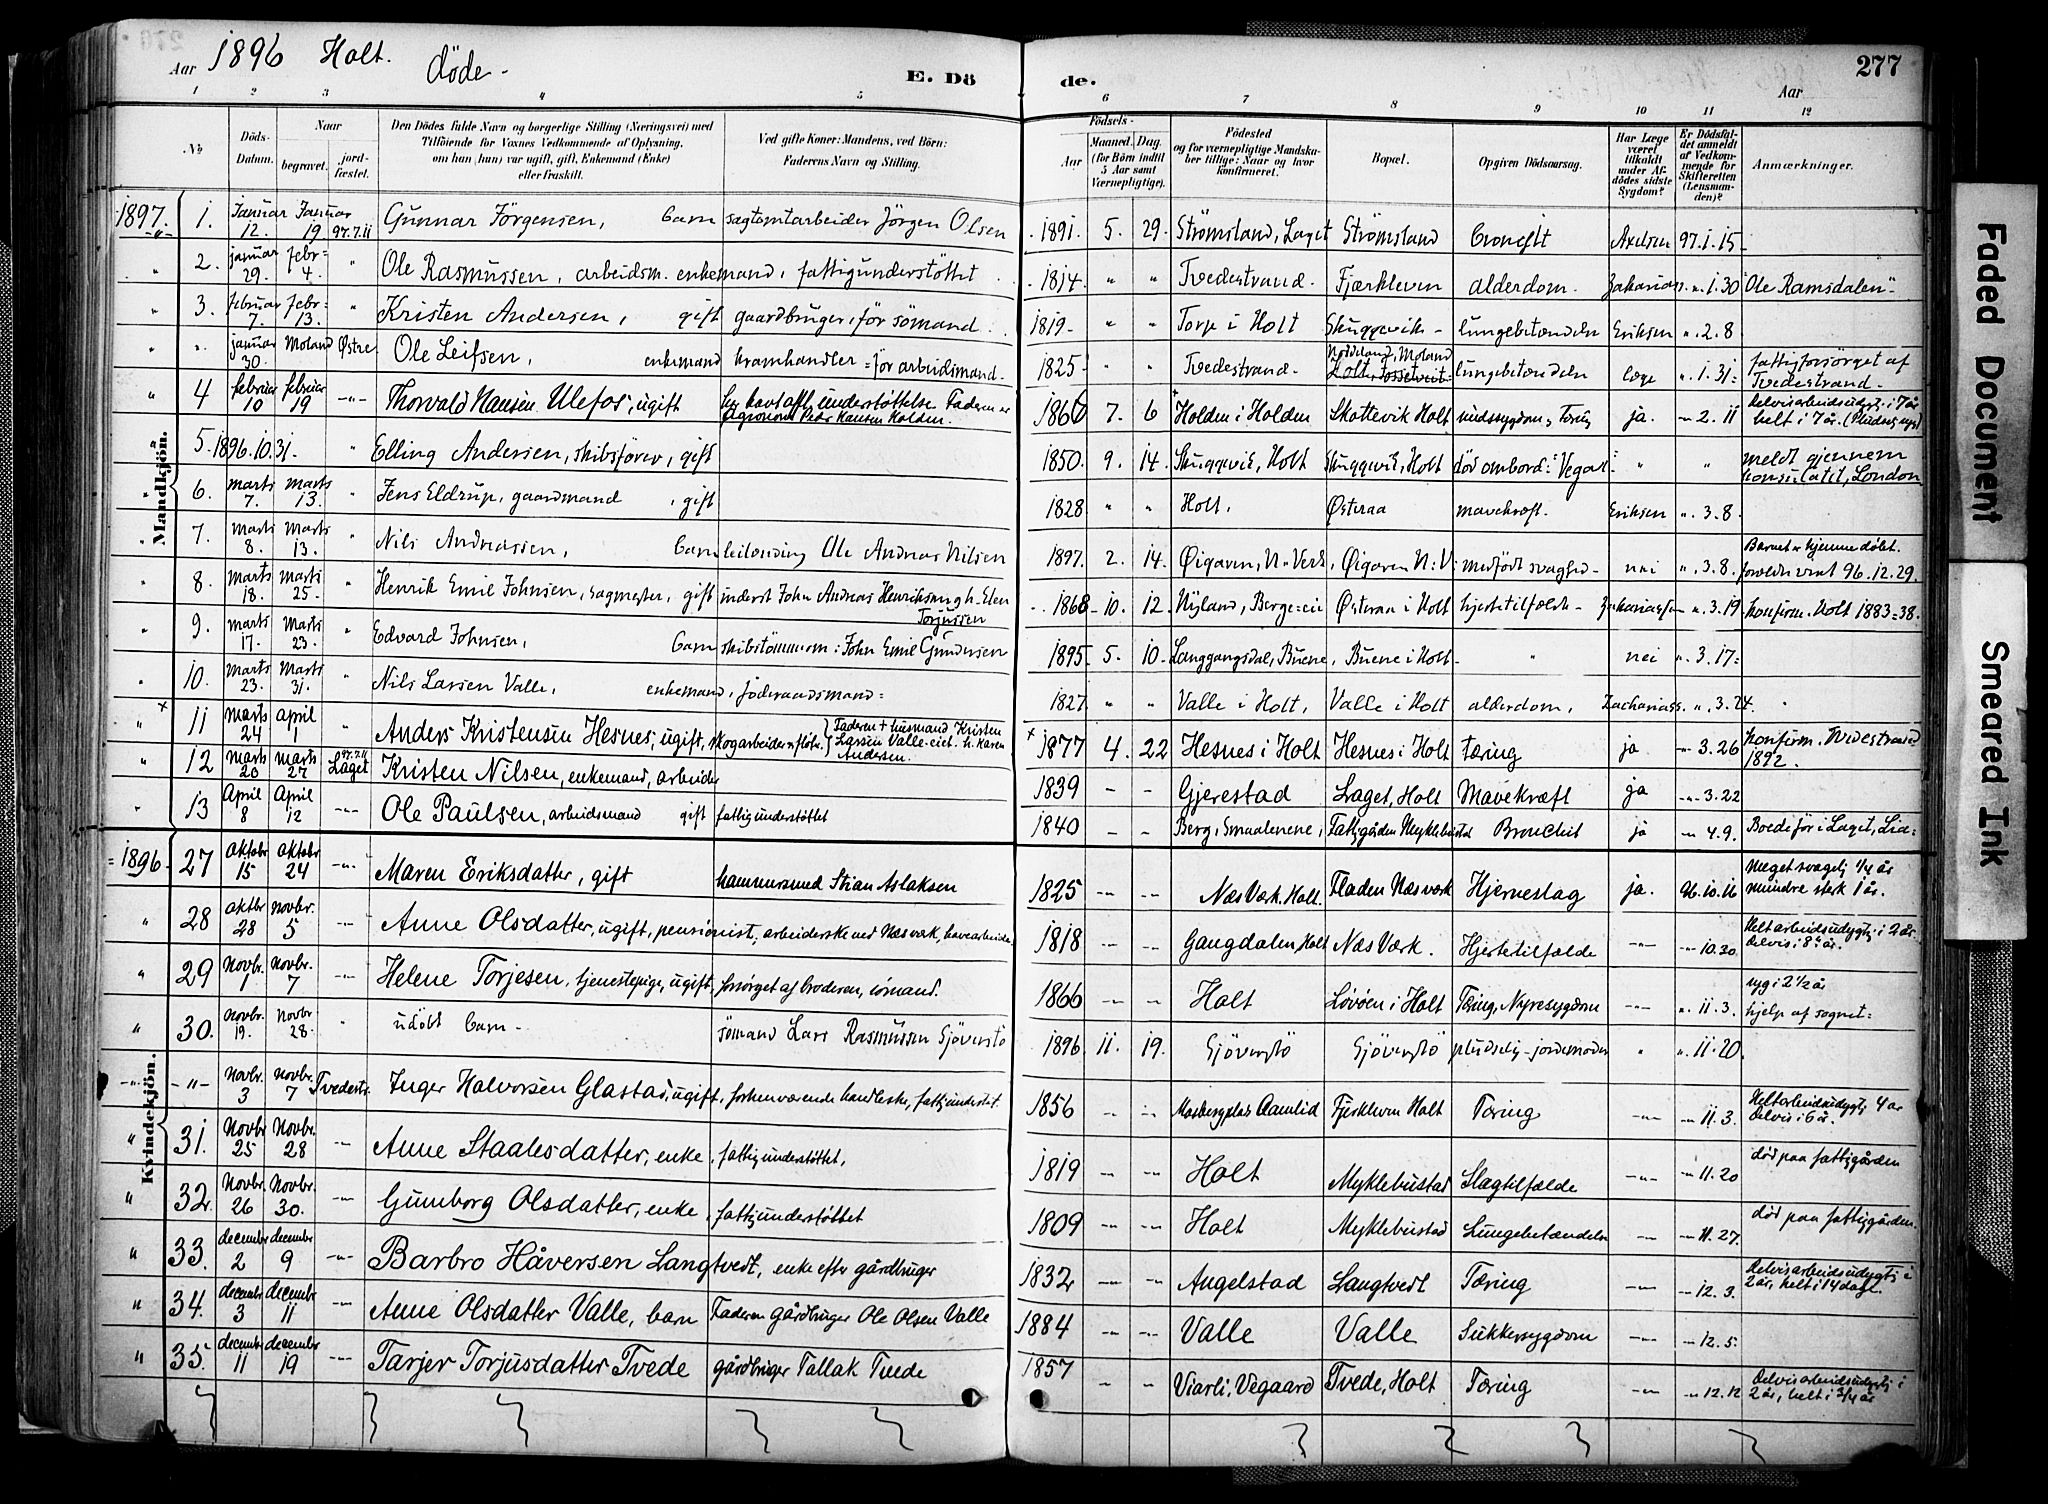 Aar 1896 Holt. döde -
E. Döde.
277
Aar
1 2 3 4 5 6 7 8 9 10 11 12
No
Döds-Datum.
Naar begravet. jord-fæstet.
Den Dödes fulde Navn og borgerlige Stilling (Næringsvei) med Tilföiende for Voxnes Vedkommende af Oplysning, om han (hun) var ugift, gift, Enkemand (Enke) eller fraskilt.
Ved gifte Koner: Mandens, ved Börn: Faderens Navn og Stilling.
Födsels- Aar Maaned. Dag. (for Börn indtil 5 Aar samt Værnepligtige).
Födested og for værnepligtige Mandskaber tillige: Naar og hvor konfirmeret.
Bopæl.
Opgiven Dödsaarsag.
Har Læge været tilkaldt under Afdödes sidste Sygdom?
Er Dödsfaldet anmeldt af Vedkommende for Skifteretten (Lensmanden)?
Anmærkninger.
Mandkjön.
1897. 1. Januar 12. Januar 19 97.7.11 Gunnar Jörgensen, barn sagtomtarbeider Jörgen Olsen 1891. 5. 29. Strömsland, Laget Strömsland Axelsen 97.1.15
" 2. januar 29. febr. 4. " Ole Rasmussen, arbeidsm. enkemand, fattigunderstöttet 1814 " " Tvedestrand. Fjærkleven alderdom. ".1.30 "Ole Ramsdalen"
" 3. februar 7. febr: 13. " Kristen Andersen, gift gaardbruger, för sömand 1819 " " Torp i Holt Skuggevik lungebetændelse Eriksen ".2.8
" ". januar 30. Moland Østre Ole Leifsen, enkemand kramhandler = för arbeidsmand 1825 " " Tvedestrand Moland lungebetændelse læge ".1.31 fattigforsörget af Tvedestrand
" 4 februar 10 februar 19 -"- Thorvald Hansen Ulefos, ugift understöttelse Faderen er Agronom Peder Hansen Holden. 7. 6 Holden i Holden Skottevik Holt ja. " 2.11 Delvis arbeidsudygt. i 7 år helt i 7 år.
" 5. 1896.10.31. " Elling Andersen, skibsförer, gift 1850. 9. 14. Skuggevik, Holt Skuggevik, Holt död ombord i "Vega" " " meldt gjennem konsulatet, London
" 6. marts 7. marts 13. " Jens Eldrup, gaardmand, gift 1828 " " Holt, Østeraa mavekræft. Eriksen ".3.8.
" 7. marts 8. marts 13. " Nils Andreassen, barn leilending Ole Andreas Nilsen 1897. 2. 14. Øigaren, N. Verk, Øigaren N: V: medfödt svaghed nei ".3.8. Barnet er hjemmedöbt. foreldr. viet 96.12.29.
" 8. marts 18. marts 25. " Henrik Emil Johnsen, sagmester, gift inderst John Andreas Henriksen gh. Elen Torjussen 1868 10. 12. Nyland, Berge Østeraa i Holt hjertetilfælde ".3.19 konfirm. Holt 1883=38.
" 9. marts 17. marts 23. " Edvard Johnsen, barn skibstömmerm: John Emil Gundersen 1895 5. 10. Langgangsdal, Buene, Buene i Holt " nei ".3.17
" 10. marts 23. marts 31. " Nils Larsen Valle, enkemand, föderaadsmand 1827. " " Valle i Holt, Valle i Holt alderdom, ".3.24.
" 11 marts 24 april 1 " Anders Kristensen Hesnes, ugift, skogarbeider, flöter. Faderen + husmand Kristen Larsen Valle-eiet. h. Karen Andersen. 1877 4. 22 Hesnes i Holt Hesnes i Holt Tæring ja " 3.26 konfirm. Tvedestrand 1892.
" 12 marts 20 marts 27 97.7.11 Laget Kristen Nilsen, enkemand, arbeider 1839 - - Gjerestad Laget, Holt Mavekræft ja -"- 3.22
" 13 April 8 April 12 -"- Ole Paulsen, arbeidsmand gift fattigunderstöttet 1840 - - Berg, Smaalenene, Fattiggården Myklebustad Bronchit ja " 4.9. Boede för i Laget, Lia
Kvindekjön.
1896 27 oktobr 15 oktobr 24 -"- Maren Eriksdatter, gift hammersmed Stian Aslaksen 1825 -- -- Næs Værk. Holt. Fladen Næs værk Hjerneslag ja. 96.10.16 Meget svagelig 1/4 år mindre sterk 1 år.
" 28 oktbr 28 novbr. 5 -"- Anne Olsdatter, ugift, pensionist, arbeiderske ved Næs værk, havearbeide 1818 -- -- Gangdalen, Holt Næs Værk. Hjertetilfælde -"- -"- 10.30 Helt arbeidsudygtig i 2 år. delvis i 8 år.
" 29 Novbr. 1 Novbr. 7 -"- Helene Torjesen, tjenestepige, ugift, forsörget af broderen, sömand. 1866 -- -- Holt Løvöen i Holt Tæring, Nyresygdom -"- ". 11.3. syg i 2 1/2 år hjelp af sognet
" 30. novbr. 19. novbr 28. " udöbt barn sömand Lars Rasmussen Gjöverstö 1896 11. 19. Gjöverstö Gjöverstö pludselig - jordemoder " ". 11.20
-"- -"- Novbr. 3 novbr. 7 Tvedestr. Inger Halvorsen Glastad, ugift, forhenværende handlerske, fattigunderstöt. 1856 -- -- Aamlid Fjerkleven Holt Tæring -"- -"- 11.3. Helt arbeidsudygtig 4 år delvis i 6 år.
" 31. Novbr 25 Novbr. 28 -"- Anne Staalesdatter, enke, fattigunderstöttet, 1819 -- -- Holt Myklebustad Slagtilfælde -"- -"- 11.20 död paa fattiggården
" 32. Novbr. 26 Novbr. 30. -"- Gunborg Olsdatter, enke, fattigunderstöttet 1809 -- -- Holt Myklebustad Lungebetændelse -"- -"- 11.27. död paa fattiggården.
" 33. decembr 2 decembr 9 -"- Barbro Håversen Langtvedt, enke efter gårdbruger 1832 -- -- Angelstad Langtvedt Tæring -"- -"- 12.3. Delvis arbeidsudygtig i 2 år, helt i 14 dage.
" 34. decembr 3 decembr 11 -"- Anne Olsdatter Valle, barn Faderen gårdbruger Ole Olsen Valle 1884 -- -- Valle Valle Sukkersygdom -"- -"- 12.5.
" 35. decembr 11 decembr 19 -"- Tarjer Torjusdatter Tvede gårdbruger Tallak Tvede 1857 -- -- Viarli, Vegaard Tvede, Holt Tæring -"- -"- 12.12 Delvis arbeidsudygtig i 2 år, helt i 3/4 år
Faded Document
Smeared Ink